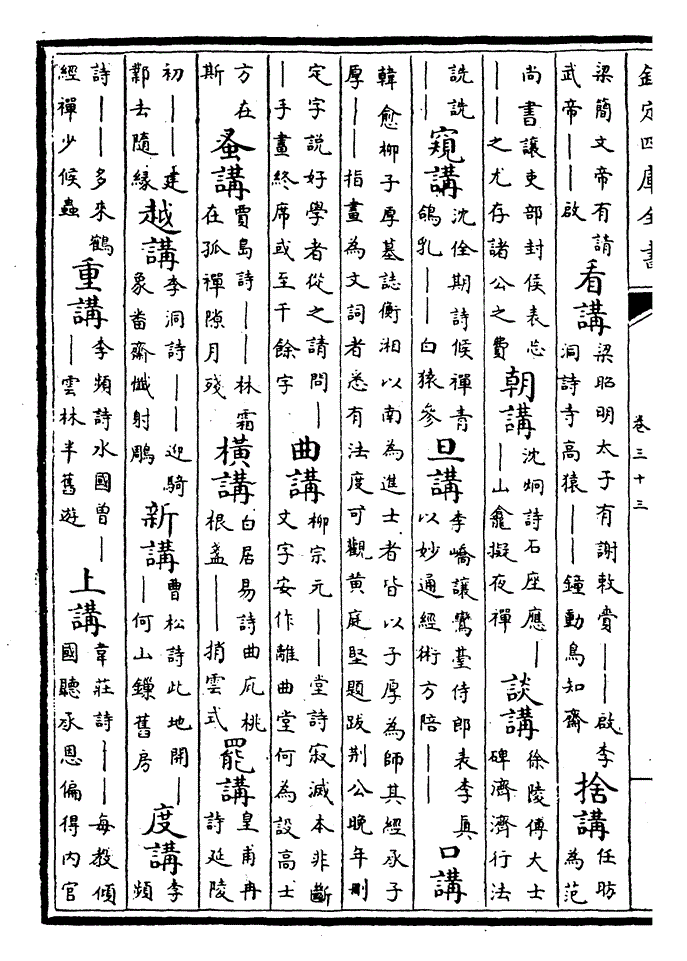 欽定四庫全書
卷三十三
梁簡文帝有請
武帝——啟
看講
梁昭明太子有謝敕賚——啟李
洞詩寺高猿——鐘動鳥知齋
捨講
任昉
為范
尚書讓吏部封侯表忘
——之尤存諸公之費
朝講
沈炯詩石座應—
—山龕擬夜禪
談講
徐陵傅大士
碑濟濟行法
詵詵
——
窺講
沈佺期詩候禪青
鴿乳——白猿參
旦講
李嶠讓鸞臺侍郎表李真
以妙通經術方陪——
口講
韓愈柳子厚墓誌衡湘以南為進士者皆以子厚為師其經承子
厚——指畫為文詞者悉有法度可觀黃庭堅題跋荆公晚年刪
定字說好學者從之請問—
—手畫終席或至千餘字
曲講
柳宗元——堂詩寂滅本非斷
文字安作離曲堂何為設高士
方在
斯
蚤講
賈島詩——林霜
在孤禪隙月殘
橫講
白居易詩曲庇桃
根盞——捎雲式
罷講
皇甫冉
詩延陵
初——建
鄴去隨緣
越講
李洞詩——迎騎
象畨齋懺射鵰
新講
曹松詩此地開—
—何山鏁舊房
度講
李
頻
詩——多來鶴
經禪少候蟲
重講
李頻詩水國曾—
—雲林半舊遊
上講
韋莊詩——每教傾
國聽承恩偏得內官